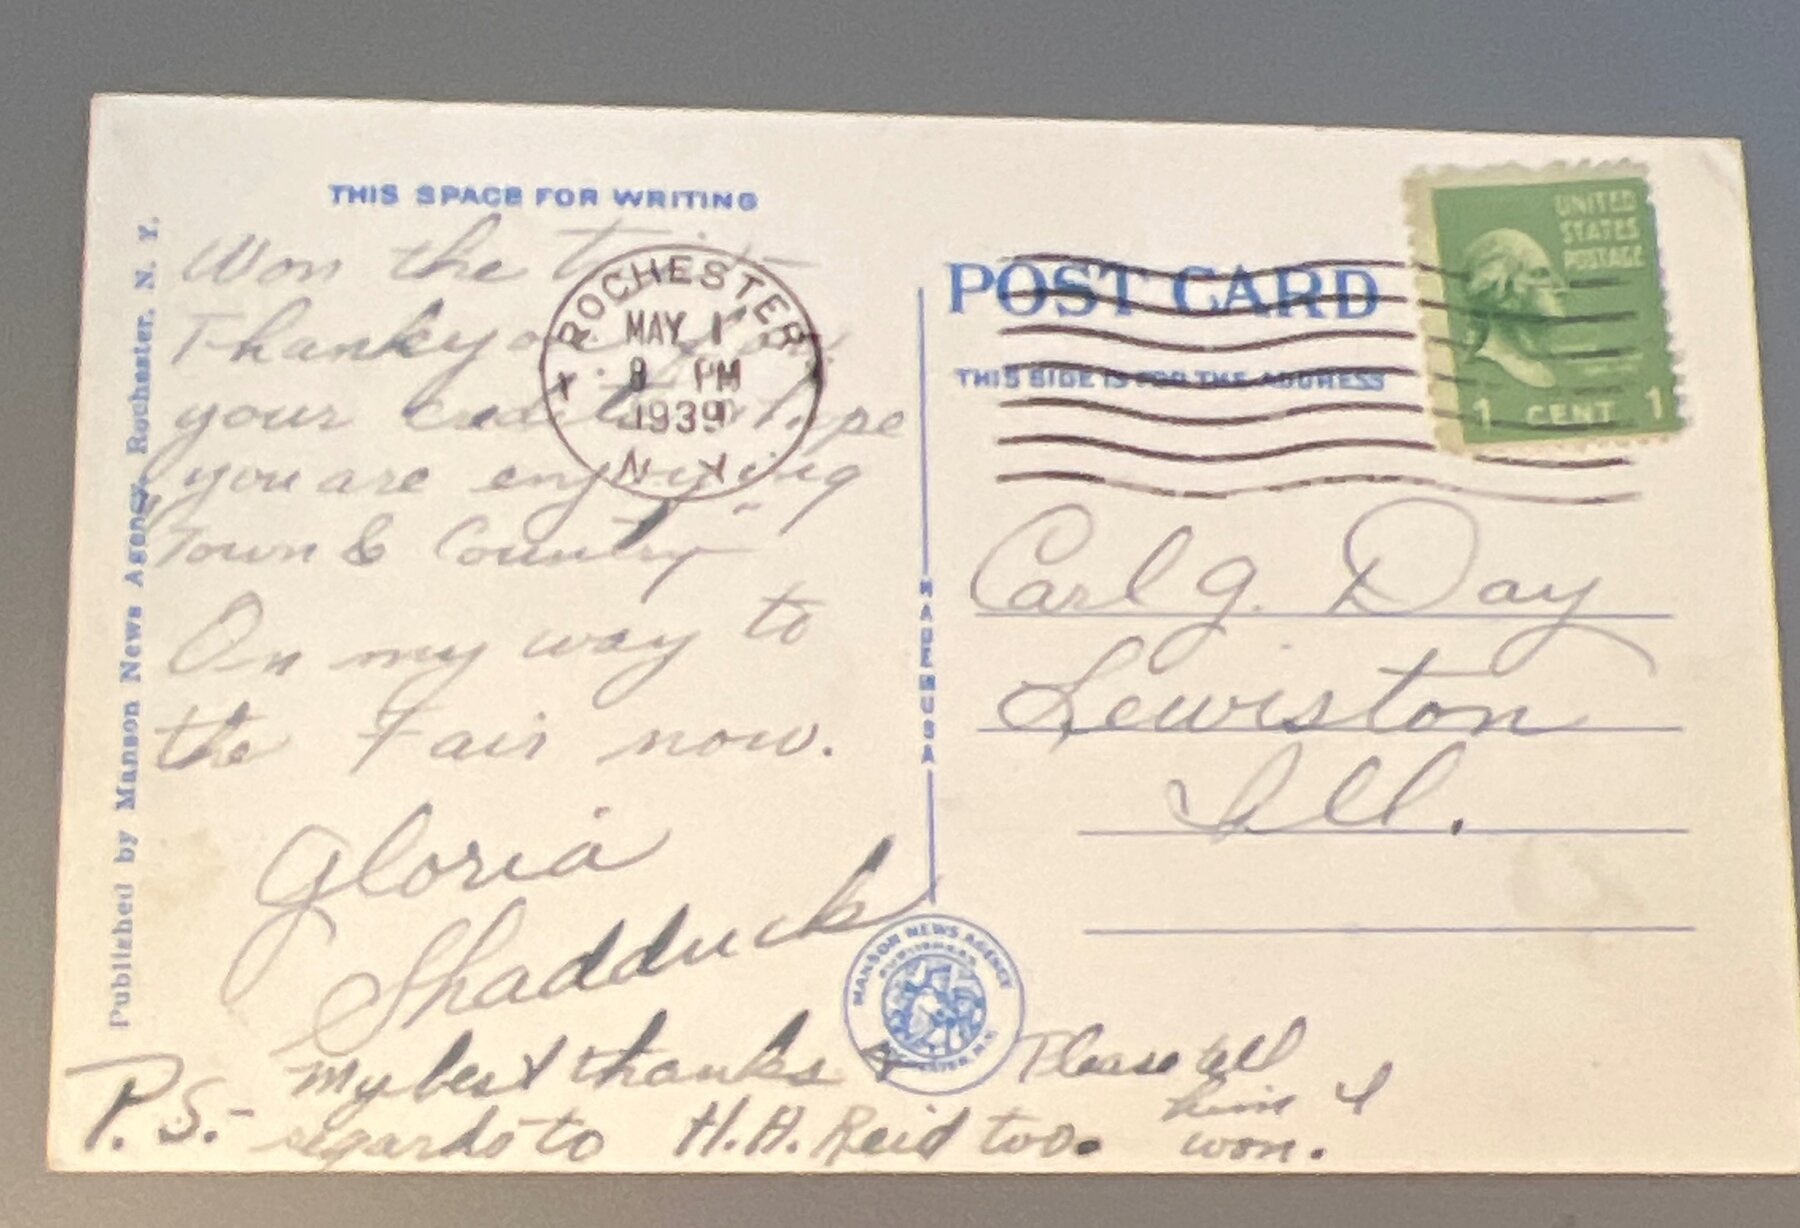 THIS SPACE FOR WRITING
Won the trip —
Thank you for
your credit — hope
you are enjoying
"Town & Country"
On my way to
the Fair now.
Gloria
Shadduck
P.S.- My best thanks &
regards to H.A. Reid too. Please tell
him I
won.
Published by Manson News Agency, Rochester, N. Y.
ROCHESTER
MAY 1
8 PM
1939
N.Y.
POST CARD
THIS SIDE IS FOR THE ADDRESS
UNITED
STATES
POSTAGE
1 CENT 1
Carl G. Day
Lewiston
Ill.
MADE IN USA
MANSON NEWS AGENCY
PUBLISHERS
ROCHESTER, N.Y.